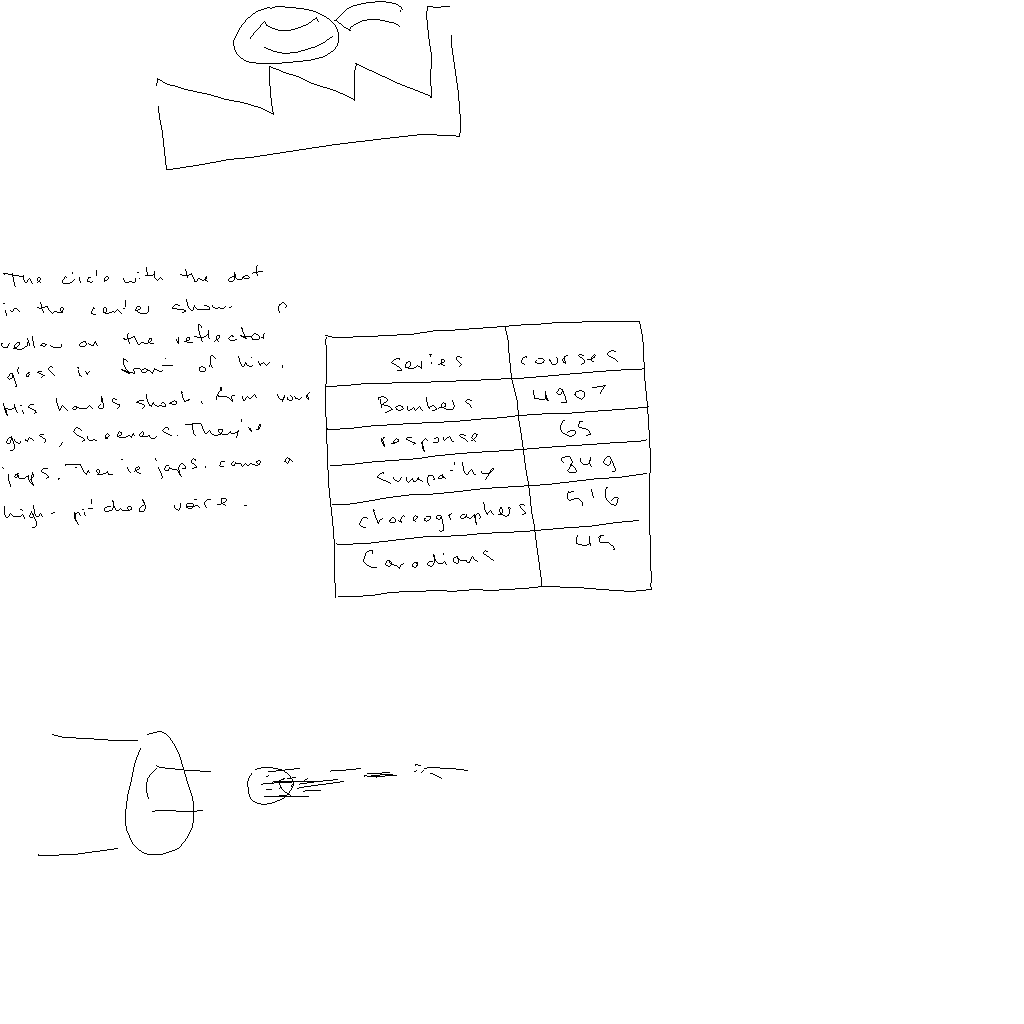 The circle with the dot
in the center shown
yellow on the reflector
glass in front of him.
His hands shook. Arm your
guns, Sweeney. They're
japs. Their japs. came a
high-pitched voice.
series courses
Bombers 4907
response 65
sympathy 849
choreographers 516
Canadians 45